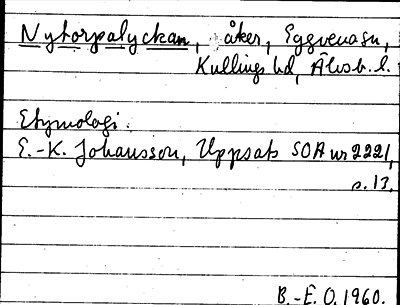 Nytorpalyckan, åker, Eggvena sn,
Kullings hd, Älvsb. l.
Etymologi:
E.-K. Johansson, Uppsats SOA nr 2221,
s. 13.
B.-E. O. 1960.